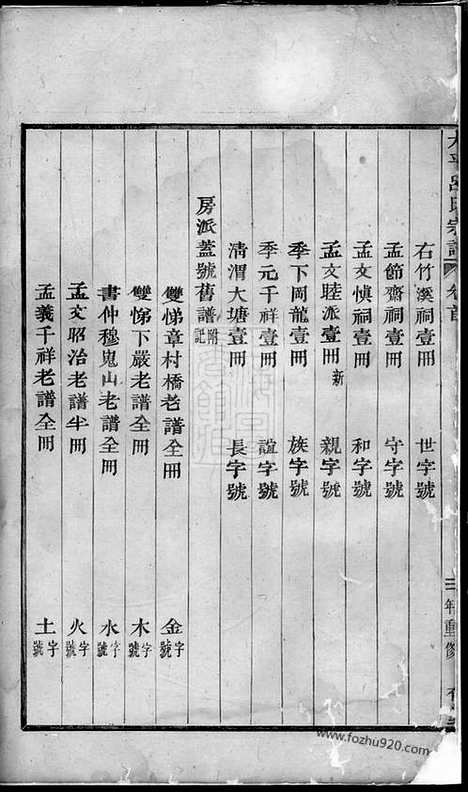 太平呂氏宗譜 卷首
右竹溪祠壹冊 世字號
孟節齋祠壹冊 守字號
孟文慎祠壹冊 和字號
孟文睦派壹冊新 親字號
季下岡龍壹冊 族字號
季元千祥壹冊 誼字號
清渭大塘壹冊 長字號
房派蓋號舊譜附記
雙悌章村橋老譜全冊 金字號
雙悌下嚴老譜全冊 木字號
書仲穆鬼山老譜全冊 水字號
孟文昭治老譜半冊 火字號
孟義千祥老譜全冊 土字號
年重修
www.fozhu920.com